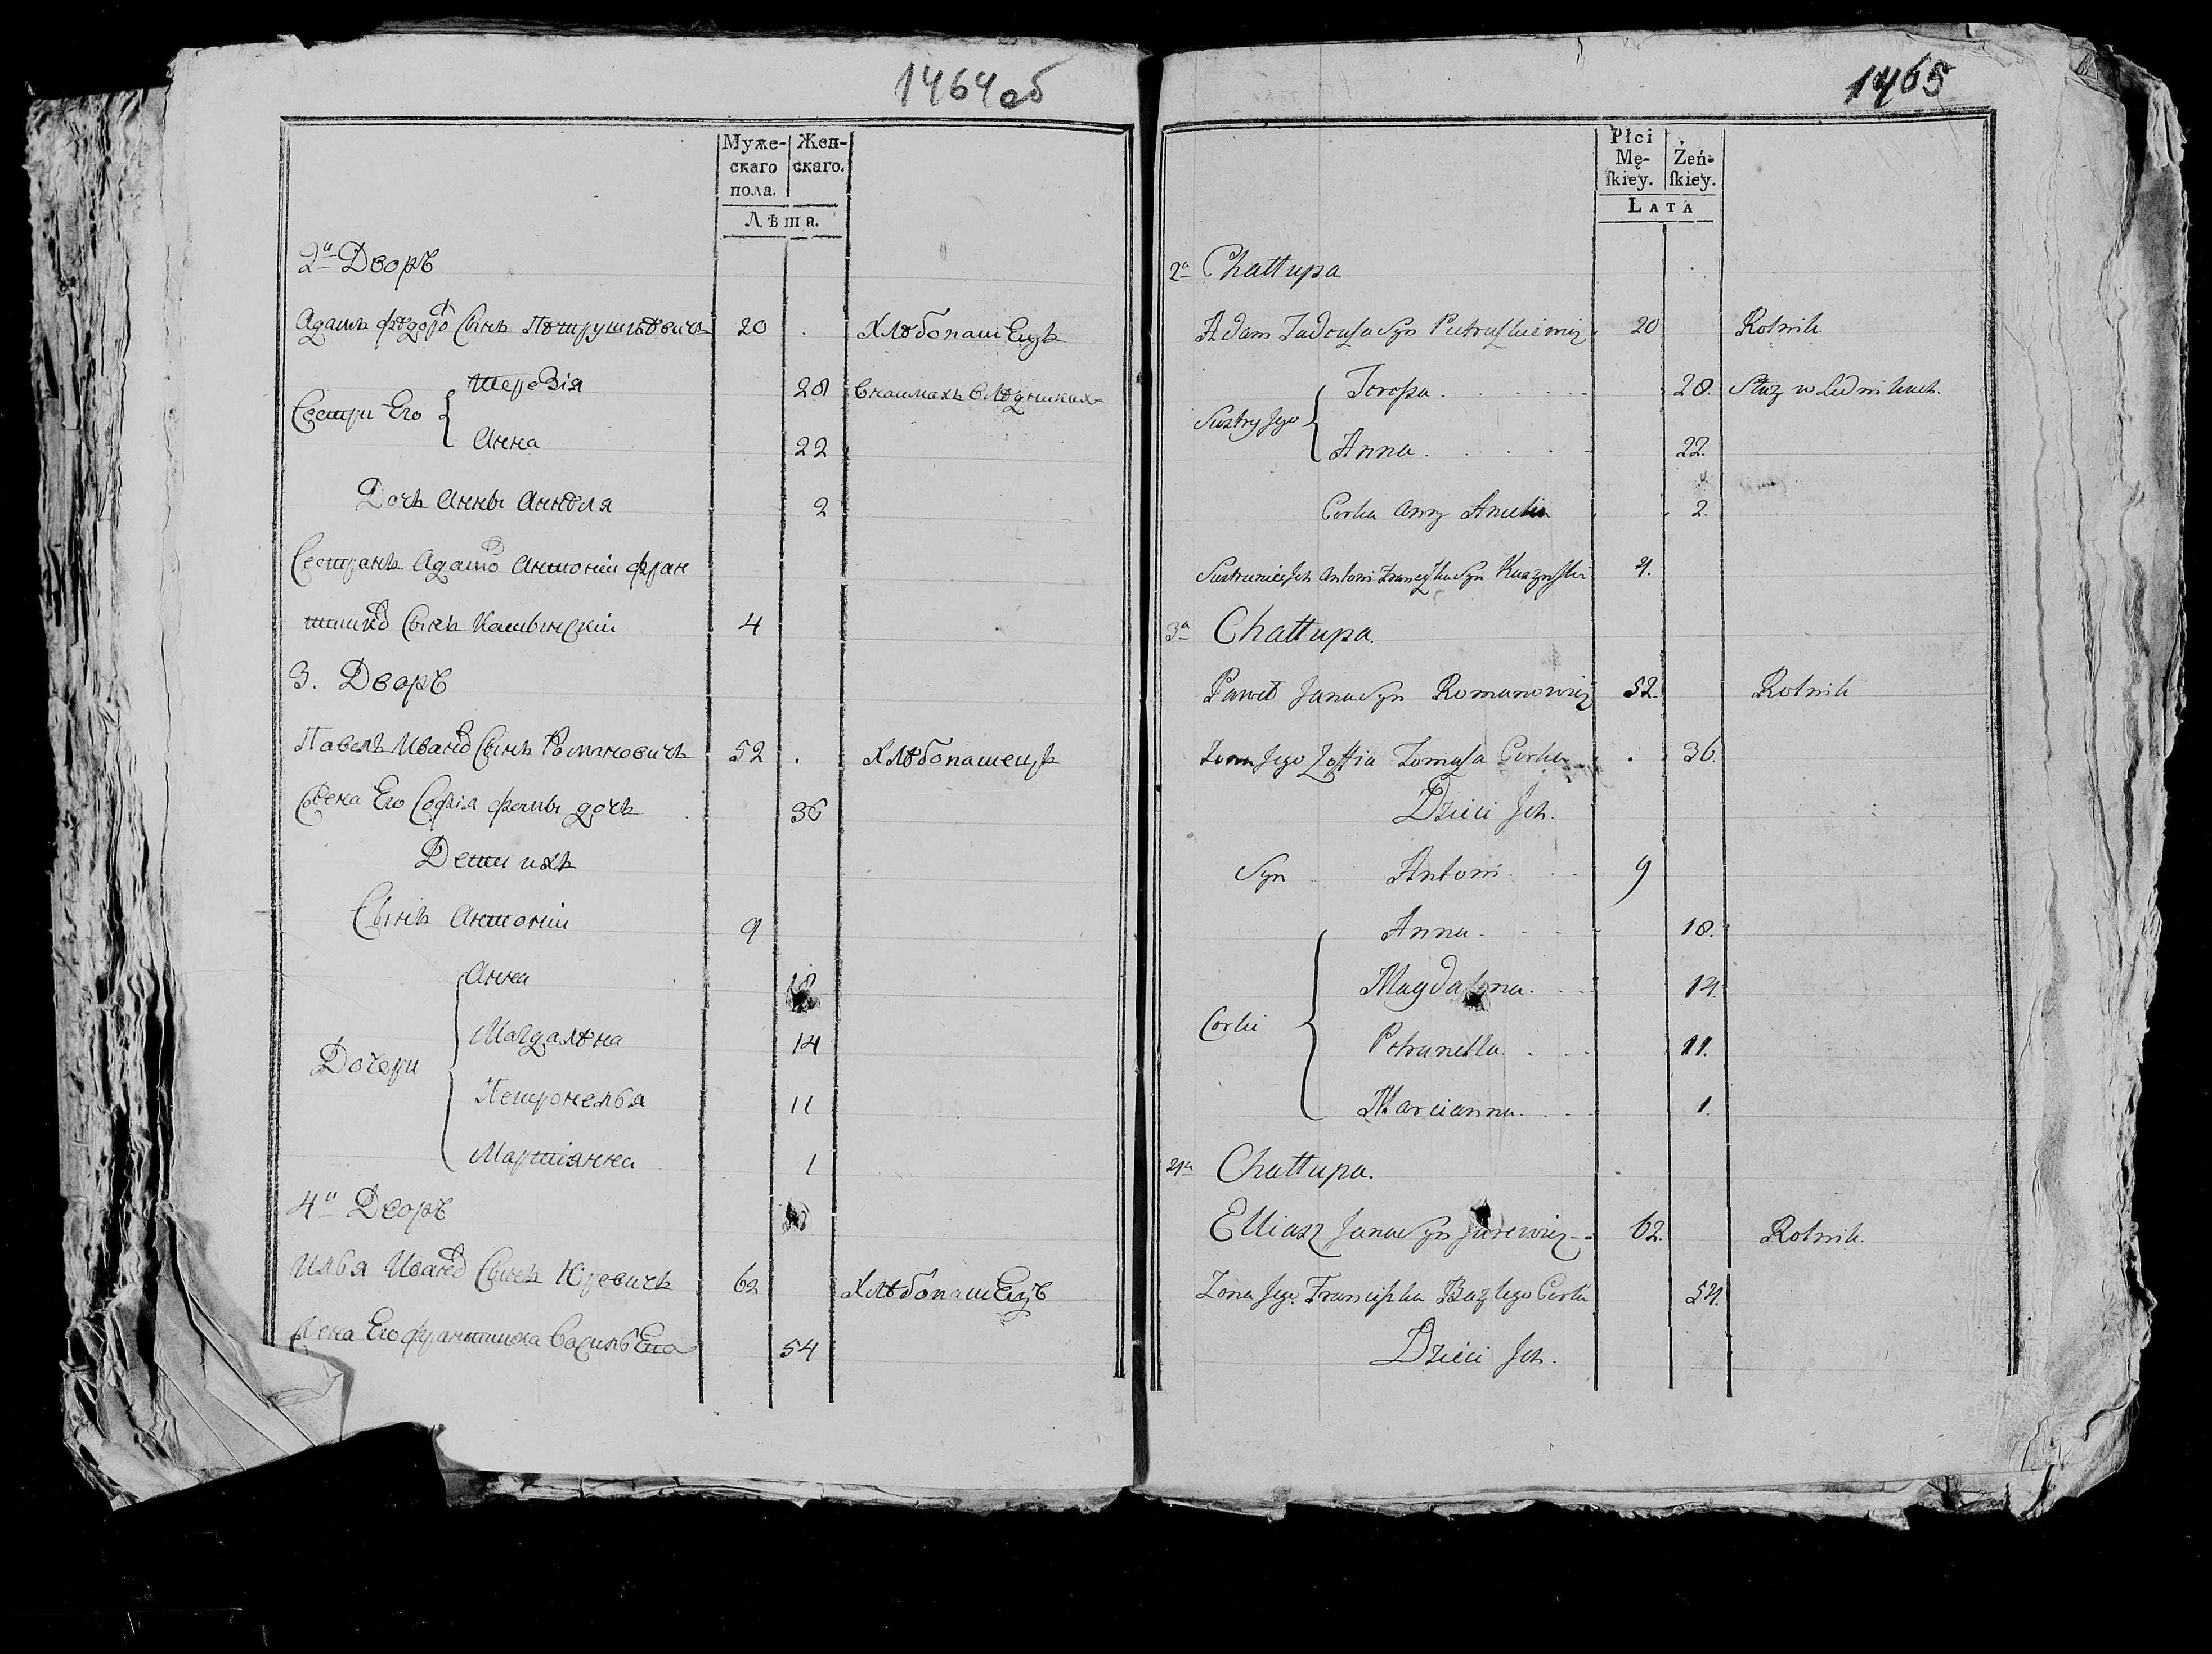 1464об
Муже-
скаго
пола.
Жен-
скаго.
Лѣта.
2й Дворъ
Адамъ Федоров Сынъ Петрушкевичъ 20 . Хлѣбопашецъ
Сестры Его
Терезія 28 Внаймахъ
Анна 22
Дочь Анны Анѣля 2
Сестранъ Адамов Антоній Фран
тишков Сынъ 4
3. Дворъ
Павелъ Иванов Сынъ Романовичъ 52 . Хлѣбопашецъ
Жена Его Софія Фомы дочь 36
Дети ихъ
Сынъ Антоній 9
Дочери
Анна 18
Магдалѣна 14
Петронелья 11
Мартіянна 1
4й Дворъ
Илья Иванов Сынъ Юревичъ 62 Хлѣбопашецъ
Жена Его Франтишка Васильева 54
1465
Płci
Mę-
ſkiey.
Żeń-
ſkiey.
LATA
2a Chałłupa
Adam Tadeusa Syn Petruszkiewicz 20 Rolnik
Siostry Jego
Teressa . . . 28. Służ w Lednikach.
Anna . . . 22.
Corka Anny Aniela 2.
Antoni Franciszka Syn 4.
3a Chałłupa.
Paweł Jana Syn Romanowicz 52. Rolnik
Żona Jego Zoffia Tomasa Corka . 36.
Dzieci Ich.
Syn Antoni . . 9
Corki
Anna . . . 18.
Magdalena . . 14.
Petranella . . . 11.
Marcianna . . . 1.
4ta Chałłupa.
Elliasz Jana Syn Jurewicz . 62. Rolnik.
Żona Jego Franciszka Bazylego Corka 54.
Dzieci Ich.